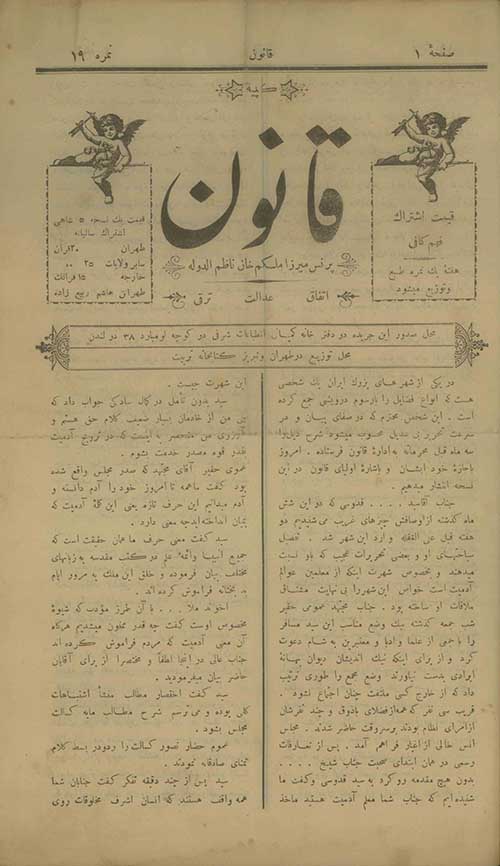 صفحهٔ ۱
قانون
نمره ۱۹
کلیه
قانون
پرنس میرزا ملکم خان ناظم الدوله
اتفاق عدالت ترقی
قیمت اشتراک
فهم کافی
هفتهٔ یک نمره طبع
و توزیع میشود
قیمت یک نسخه ۵ شاهی
اشتراک سالیانه
طهران ۲۰ قران
سایر ولایات ۲۵ ..
خارجه ۱۵ فرانک
طهران هاشم ربیع زاده
محل صدور این جریده در دفتر خانه کمپانی انطباعات شرقی در کوچه لومبارد ۳۸ در لندن
محل توزیع در طهران و تبریز کتابخانه تربیت
در یکی از شهرهای بزرک ایران یک شخصی
هست که انواع فضایل را با رسوم درویشی جمع کرده
است . این شخص محترم که در صفای بیان و در
سرعت تحریر بی بدیل محسوب میشود شرح ذیل را
سه ماه قبل محرمانه به ادارهٔ قانون فرستاده . امروز
باجازهٔ خود ایشان و باشارهٔ اولیای قانون در این
نسخه انتشار میدهیم .
جناب آقاسید .... قدوسی که دو این شش
ماه گذشته از اوصافش چیزهای غریب می شنیدیم دو
هفته قبل علی الغفله وارد این شهر شد . تفصیل
سیاحتهای او و بعضی تحریرات عجیب که باو نسبت
میدهند و بخصوص شهرت اینکه از معلمین عوالم
آدمیت است خواص این شهر را بی نهایت مشتاق
ملاقات او ساخته بود . جناب مجتهد عمومی حقیر
شب جمعه گذشته بیک وضع مناسب این سید مسافر
را با جمعی از علما و ادبا و معتبرین به شام دعوت
کرد و از برای اینکه نیک اندیشان دیوان بهانهٔ
ایرادی بدست نیاورند وضع مجمع را طوری ترتیب
داد که از خارج کسی ملتفت چنان اجتماع نشود .
قریب سی نفر که همه از فضلای باذوق و چند نفرشان
از امرای نظام بودند و سر وقت حاضر شدند . مجلس
انس خالی از اغیار فراهم آمد . پس از تعارفات
رسمی در همان ابتدای صحبت جناب شیخ ....
بدون هیچ مقدمه رو کرد به سید قدوسی و گفت ما
شنیده ایم که جناب شما معلم آدمیت هستید ماخذ
این شهرت چیست .
سید بدون تأمل در کمال سادگی جواب داد که
بلی من از خادمان بسیار ضعیف کلام حق هستم و
آرزوی من منحصر به اینست که در ترویج آدمیت
بقدر قوه مصدر خدمت بشوم .
عموی حقیر آقای مجتهد که صدر مجلس واقع شده
بود گفت ماهمه تا امروز خود را آدم دانسته و
آدم میدانیم این حرف تازه یعنی این کلمهٔ آدمیت که
بمیان انداخته اید چه معنی دارد .
سید کفت معنی حرف ما همان حقیقت است که
جمیع انبیا وائمهٔ علم در کتب مقدسه به زبانهای
مختلف بیان فرموده و خلق این ملک به مرور ایام
بد بختانه فراموش کرده اند .
آخوند ملا ... با آن طرز مؤدب که شیوهٔ
مخصوص اوست گفت چه قدر ممنون میشدیم هرگاه
آن معنی آدمیت که مردم فراموش کرده اند
جناب عالی در اینجا لطفاً و مختصرا از برای آقایان
حاضر بیان میفرمودید .
سید کفت اختصار مطالب منشأ اشتباهات
کلی بوده و می ترسم شرح مطالب مایه کسالت
مجلس بشود .
عموم حضار تصور کسالت را رد و در بسط کلام
تمنای صادقانه نمودند .
سید پس از چند دقیقه تفکر کفت جنابان شما
همه واقف هستند که انسان اشرف مخلوقات روی